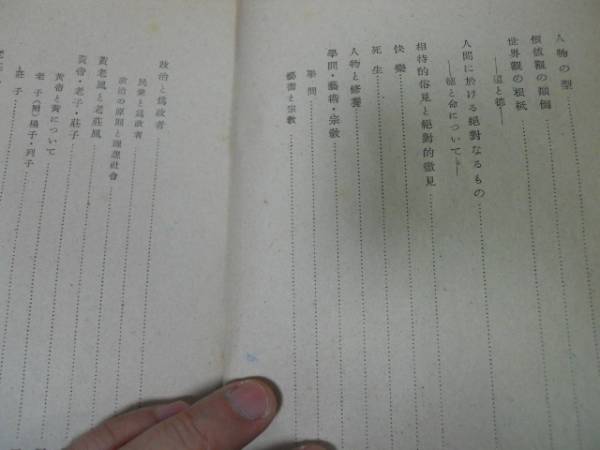 人物の型
價値觀の顚倒
世界觀の根柢
——道と德——
人間に於ける絕對なるもの
——德と命について——
相待的俗見と絕對的徹見
快樂
死生
人物と修養
學問・藝術・宗敎
學問
藝術と宗敎
政治と爲政者
民衆と爲政者
政治の原則と理想社會
黃老風と老莊風
黃帝・老子・莊子
黃帝と黃について
老子(附)楊子・列子
莊子